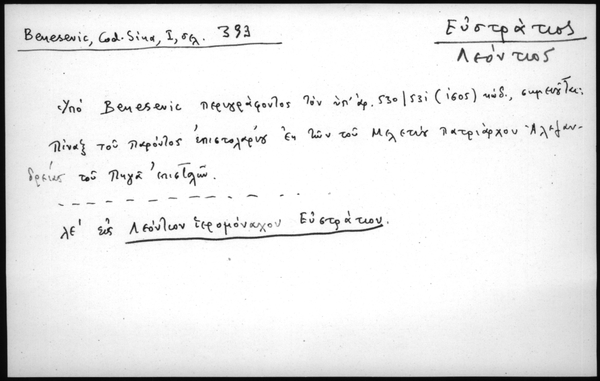 Benesevic, Cod. Sina, I, σελ. 393
Εὐστράτιος
Λεόντιος
Ὑπὸ Benesevic περιγράφοντος τὸν ὑπ' ἀρ. 530/531 (1605) κώδ., σημειοῦται:
Πίναξ τοῦ παρόντος ἐπιστολαρίου ἐκ τῶν τοῦ Μελετίου πατριάρχου Ἀλεξαν-
δρείας τοῦ Πηγᾶ ἐπιστολῶν.
λε' εἰς Λεόντιον ἱερομόναχον Εὐστράτιον.